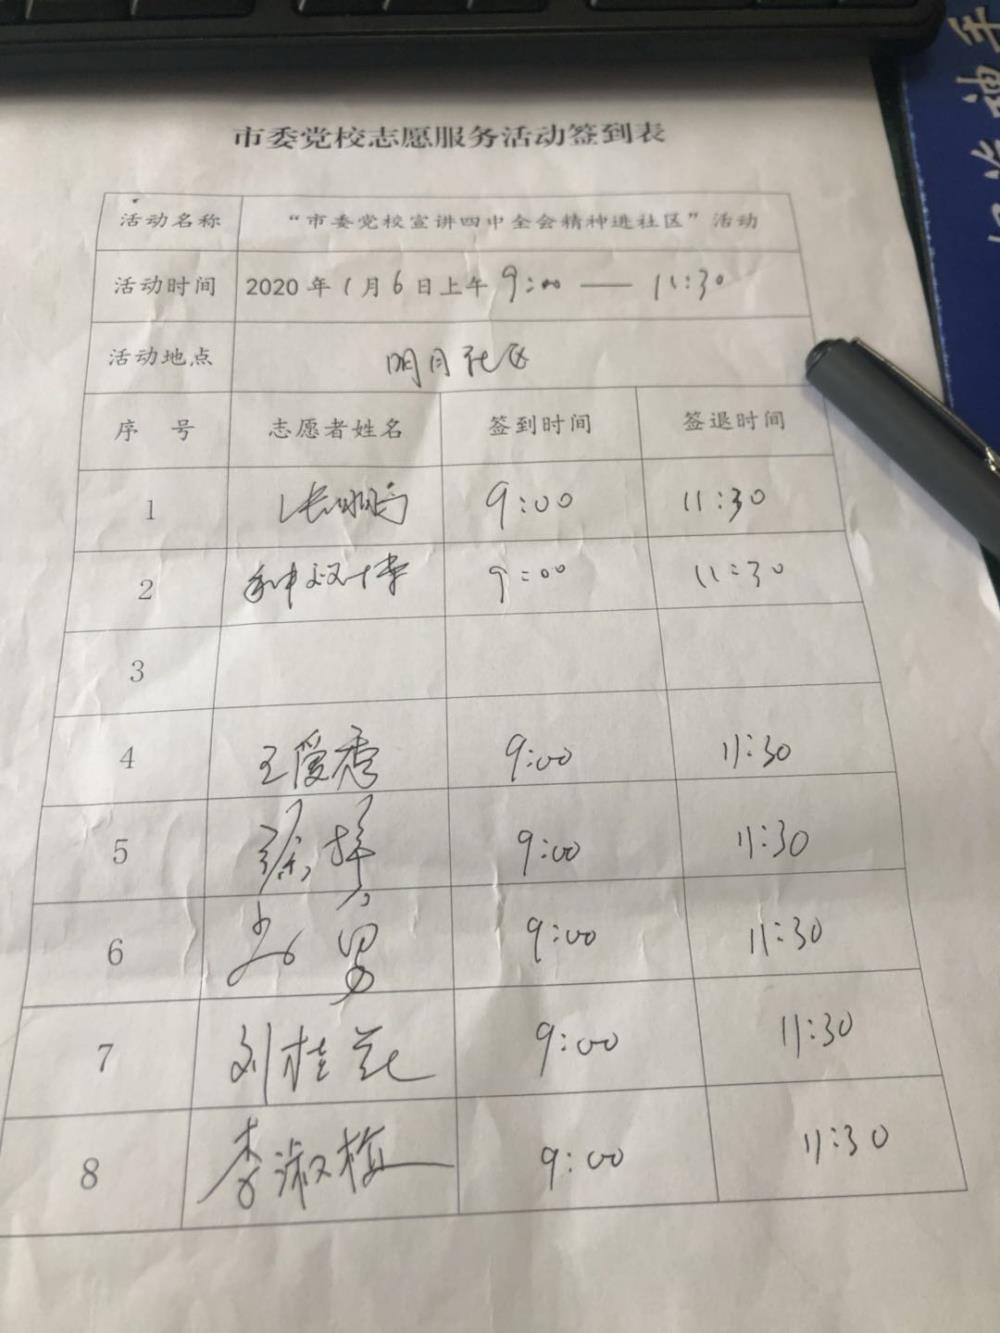 市委党校志愿服务活动签到表
活动名称 “市委党校宣讲四中全会精神进社区”活动
活动时间 2020年1月6日上午 9:00 — 11:30
活动地点 明月社区
序 号 志愿者姓名 签到时间 签退时间
1 9:00 11:30
2 9:00 11:30
3
4 王爱秀 9:00 11:30
5 9:00 11:30
6 9:00 11:30
7 刘桂花 9:00 11:30
8 李淑梅 9:00 11:30